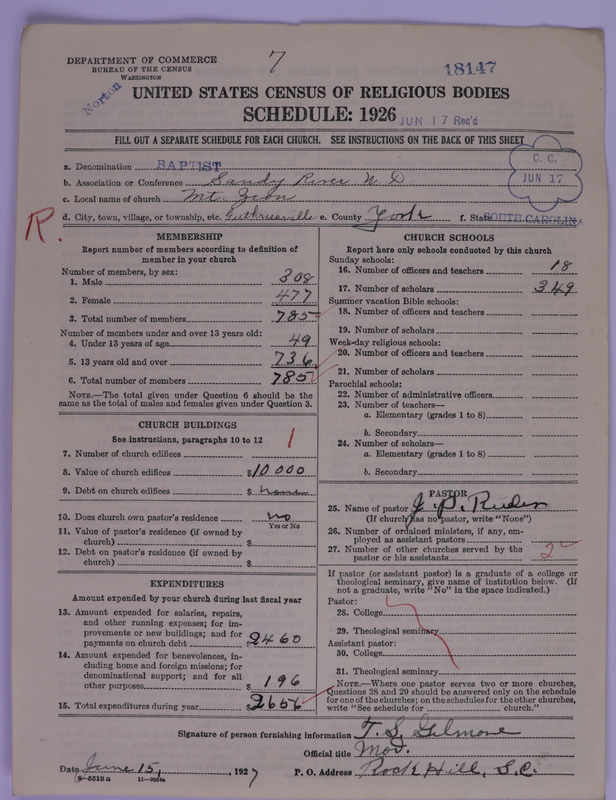 DEPARTMENT OF COMMERCE
BUREAU OF THE CENSUS
WASHINGTON
7
18147
Norton
UNITED STATES CENSUS OF RELIGIOUS BODIES
SCHEDULE: 1926
JUN 17 Rec'd
FILL OUT A SEPARATE SCHEDULE FOR EACH CHURCH. SEE INSTRUCTIONS ON THE BACK OF THIS SHEET
C. C.
JUN 17
a. Denomination BAPTIST
b. Association or Conference Sandy River N. D
c. Local name of church Mt. Zion
R.
d. City, town, village, or township, etc. Guthriesville e. County York f. State SOUTH CAROLINA
MEMBERSHIP
Report number of members according to definition of
member in your church
Number of members, by sex:
1. Male 308
2. Female 477
3. Total number of members 785
Number of members under and over 13 years old:
4. Under 13 years of age 49
5. 13 years old and over 736
6. Total number of members 785
NOTE.—The total given under Question 6 should be the
same as the total of males and females given under Question 3.
CHURCH BUILDINGS
See instructions, paragraphs 10 to 12
1
7. Number of church edifices
8. Value of church edifices $10 000
9. Debt on church edifices $ none
10. Does church own pastor's residence no
Yes or No
11. Value of pastor's residence (if owned by
church) $
12. Debt on pastor's residence (if owned by
church) $
EXPENDITURES
Amount expended by your church during last fiscal year
13. Amount expended for salaries, repairs,
and other running expenses; for im-
provements or new buildings; and for
payments on church debt $2460
14. Amount expended for benevolences, in-
cluding home and foreign missions; for
denominational support; and for all
other purposes $ 196
15. Total expenditures during year $2656
CHURCH SCHOOLS
Report here only schools conducted by this church
Sunday schools:
16. Number of officers and teachers 18
17. Number of scholars 349
Summer vacation Bible schools:
18. Number of officers and teachers
19. Number of scholars
Week-day religious schools:
20. Number of officers and teachers
21. Number of scholars
Parochial schools:
22. Number of administrative officers
23. Number of teachers—
a. Elementary (grades 1 to 8)
b. Secondary
24. Number of scholars—
a. Elementary (grades 1 to 8)
b. Secondary
PASTOR
25. Name of pastor J. P. Ruder
(If church has no pastor, write "None")
26. Number of ordained ministers, if any, em-
ployed as assistant pastors
27. Number of other churches served by the
pastor or his assistants 2
If pastor (or assistant pastor) is a graduate of a college or
theological seminary, give name of institution below. (If
not a graduate, write "No" in the space indicated.)
Pastor:
28. College
29. Theological seminary
Assistant pastor:
30. College
31. Theological seminary
NOTE.—Where one pastor serves two or more churches,
Questions 28 and 29 should be answered only on the schedule
for one of the churches; on the schedules for the other churches,
write "See schedule for church."
Signature of person furnishing information T. S. Gilmore
Official title Mod.
Date June 15, 1927 P. O. Address Rock Hill, S.C.
8—5518a 11—9054a